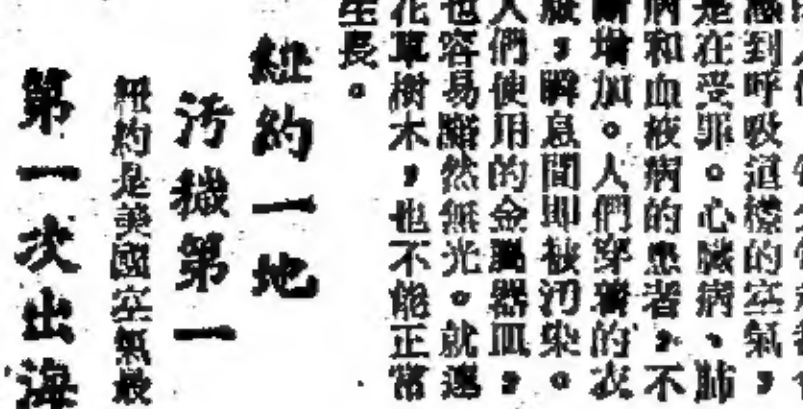 感到呼吸這樣的空氣，
是在受罪。心臟病、肺
病和血液病的患者，不
斷增加。人們穿著的衣
服，瞬息間即被污染。
人們使用的金屬器皿，
也容易黯然無光。就連
花草樹木，也不能正常
生長。
紐約一地
污穢第一
紐約是美國空氣最
第一次出海